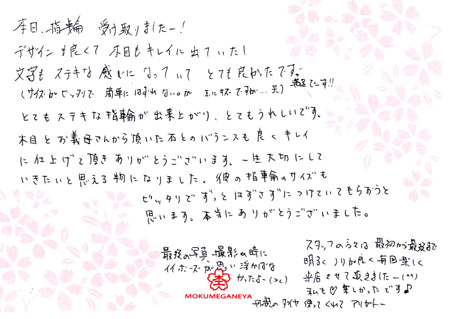 本日、指輪 受け取りましたー!
デザインも良くて 木目もキレイに出ていたし
文字も ステキな感じになっていて とても良かったですー
(サイズがピッタリで 簡単にはずれないのが キズですが…笑) 満足でーす!!
とてもステキな指輪が出来上がり、とてもうれしいです。
木目とお義母さんから頂いた石とのバランスも良くキレイ
に仕上げて頂きありがとうございます。一生大切にして
いきたいと思える物になりました。彼の指輪のサイズも
ピッタリでずっとはずさずにつけていてもらおうと
思います。本当にありがとうございました。
最後の写真撮影の時に
イイポーズが思い浮かばな
かったよー(><)
スタッフの方々は 最初から最後まで
明るく ノリが良く 毎回楽しく
来店させて頂きましたー(^^)
楽しかったです♪
ダイヤ 使ってくれて アリガトー
MOKUMEGANEYA